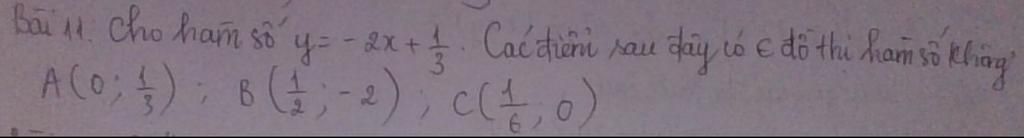 Bài 11. Cho hàm số y = -2x + 1/3. Các điểm sau đây có ∈ đồ thị hàm số không
A(0; 1/3); B(1/2; -2); C(1/6; 0)